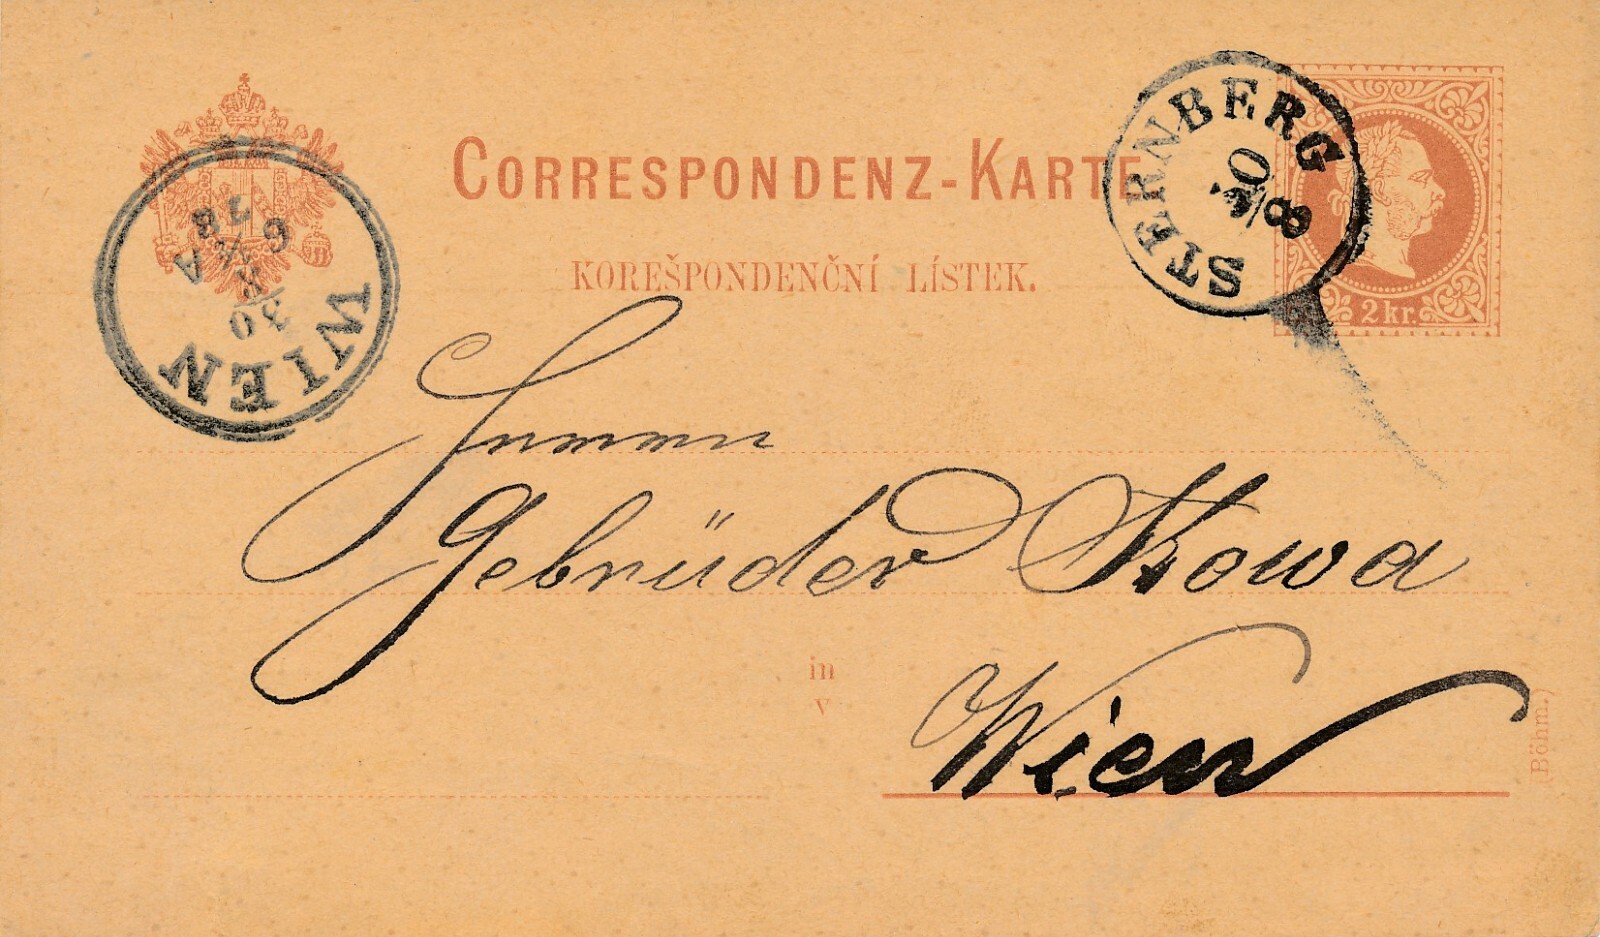 CORRESPONDENZ-KARTE
KOREŠPONDENČNÍ LÍSTEK.
STERNBERG
8
2 kr.
WIEN
30
8
78
6
A
Gebrüder Kowa
in
v
Wien
(Böhm.)